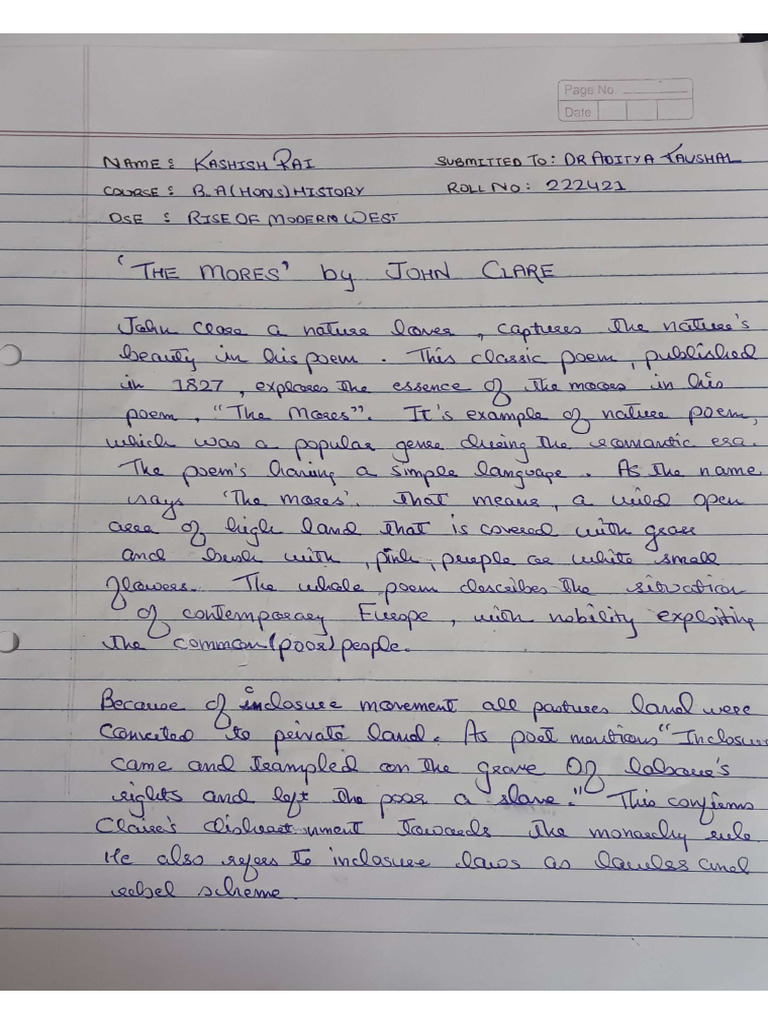 Page No.
Date
NAME : KASHISH RAI SUBMITTED TO : DR ADITYA KAUSHAL
COURSE : B.A (HONS) HISTORY ROLL NO : 222421
DSE : RISE OF MODERN WEST
'THE MORES' by JOHN CLARE
John Clare a nature lover, captures the nature's
beauty in his poem. This classic poem, published
in 1827, explores the essence of the mores in his
poem, "The Mores". It's example of nature poem,
which was a popular genre during the romantic era.
The poem's having a simple language. As the name
says 'The mores'. that means, a wild open
area of high land that is covered with grass
and bush with, pink, purple or white small
flowers. The whole poem describes the situation
of contemporary Europe, with nobility exploiting
the common (poor) people.
Because of inclosure movement all pastures land were
Converted to private land. As poet mentions "Inclosure
came and trampled on the grave Of labour's
rights and left the poor a slave." This confirms
Claire's disheartnment towards the monarchy rule.
He also refers to inclosure laws as lawless and
rebel scheme.